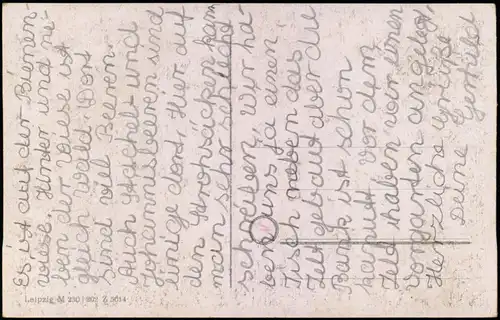 Es ist auf der Blumen-
wiese. Hinter und ne-
ben der Wiese ist
gleich Wald. Dort
sind viel Beeren.
Auch Stachel- und
Johannisbeeren sind
einige dort. Hier auf
den Strohsäcken kann
man sehr schlecht
schreiben. Wir ha-
ben uns ja einen
Tisch neben das
Zelt gebaut aber die
Bank ist schon
kaputt. Vor dem
Zelt haben wir einen
Vorgarten angelegt.
Herzliche Grüße
Deine Gertud
Leipzig M 230 | 202 Z 5614